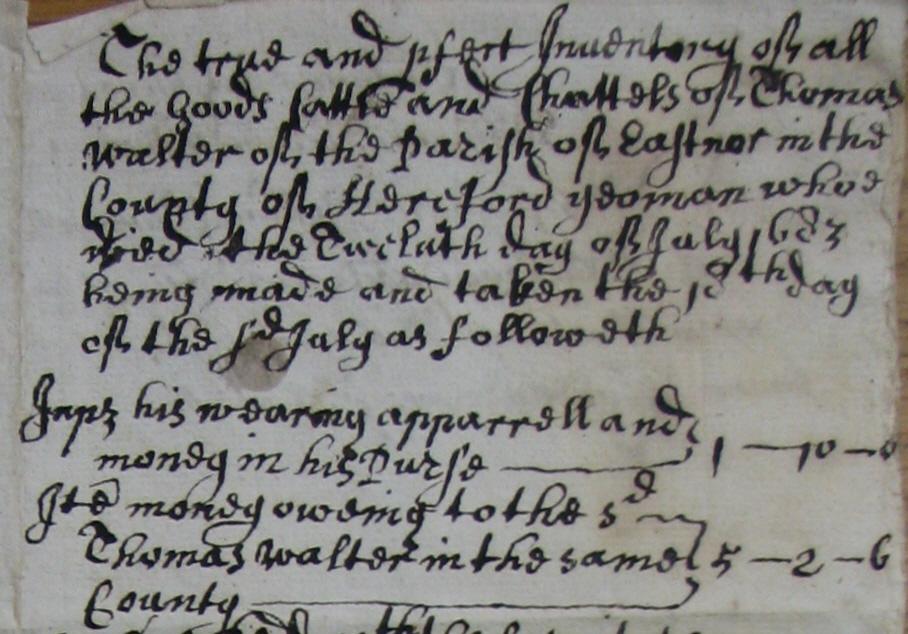 The true and pfect Inventory of all
the Goods Cattle and Chattels of Thomas
Walter of the Parish of Eastnor in the
County of Hereford yeoman whoe
died the Twelfth day of July 1683
being made and taken the 18th day
of the sd July as followeth
Inpz his wearing apparrell and
money in his Purse 1 — 10 — 0
Itē money oweing to the sd
Thomas Walter in the same 5 — 2 — 6
County